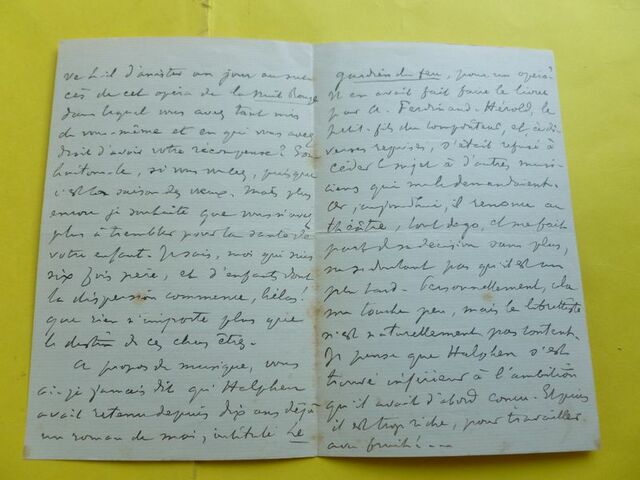 ve t-il d'assister un jour au suc-
cès de cet opéra de la Nuit Rouge
dans lequel vous avez tant mis
de vous-même et en qui vous avez
droit d'avoir votre récompense?
souhaitons-le, si vous voulez, puisque
c'est la saison des vœux. Mais plus
encore je souhaite que vous n'ayez
plus à trembler pour la santé de
votre enfant. Je sais, moi qui suis
six fois père, et d'enfants dont
la dispersion commence, hélas!
que rien n'importe plus que
le destin de ces chers êtres.
A propos de musique, vous
ai-je jamais dit qu'Halphen
avait retenu depuis dix ans déjà
un roman de moi, intitulé Le
gardien du feu, pour un opéra?
Il en avait fait faire le livret
par A. Ferdinand-Hérold, le
petit-fils du compositeur, et, à di-
verses reprises, s'était refusé à
céder le sujet à d'autres musi-
ciens qui me le demandaient.
Or, aujourd'hui, il renonce au
théâtre, tout de go, et me fait
part de sa décision sans plus,
ne se doutant pas qu'il est un
peu tard. Personnellement, cela
me touche peu, mais le librettiste
n'est naturellement pas content.
Je pense que Halphen s'est
trouvé inférieur à l'ambition
qu'il avait d'abord conçue. Et puis
il est trop riche, pour travailler
avec fruit! ...